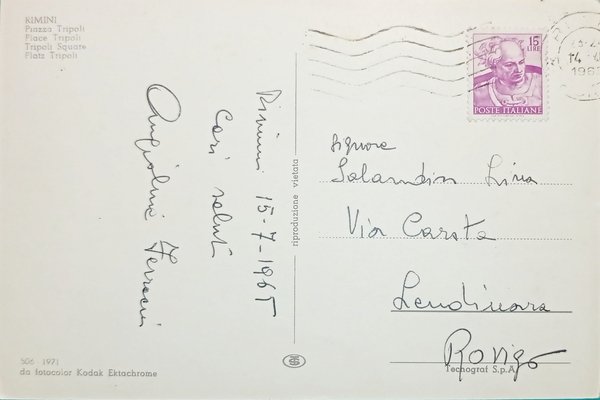 RIMINI
Piazza Tripoli
Place Tripoli
Tripoli Square
Platz Tripoli
Rimini 15-7-1965
Cari saluti
Angiolina
riproduzione vietata
15
LIRE
POSTE ITALIANE
14
196
Signora
Salandin Lina
Via Carata
Lendinara
Rovigo
506 - 1971
da fotocolor Kodak Ektachrome
Tecnograf S.p.A.